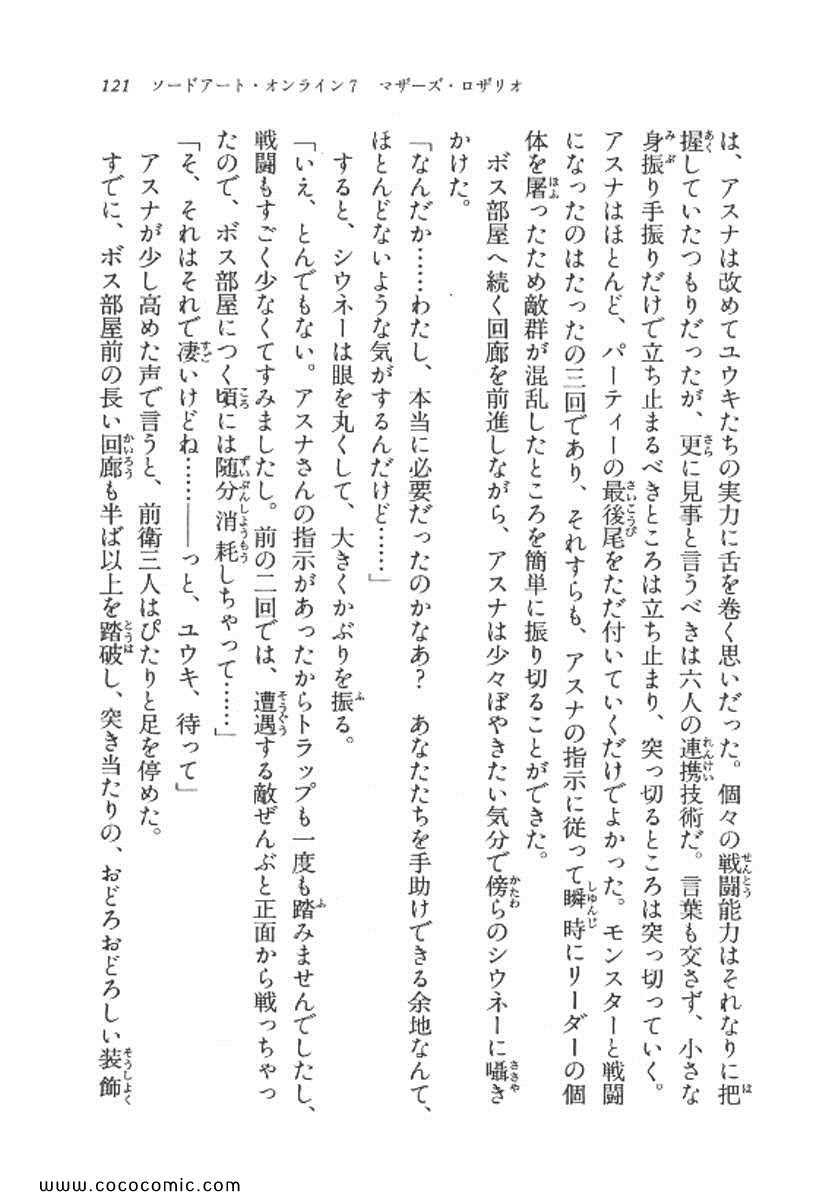 121　ソードアート・オンライン7　マザーズ・ロザリオ
は、アスナは改めてユウキたちの実力に舌を巻く思いだった。個々の戦闘能力はそれなりに把
握していたつもりだったが、更に見事と言うべきは六人の連携技術だ。言葉も交さず、小さな
身振り手振りだけで立ち止まるべきところは立ち止まり、突っ切るところは突っ切っていく。
アスナはほとんど、パーティーの最後尾をただ付いていくだけでよかった。モンスターと戦闘
になったのはたったの三回であり、それすらも、アスナの指示に従って瞬時にリーダーの個
体を屠ったため敵群が混乱したところを簡単に振り切ることができた。
　ボス部屋へ続く回廊を前進しながら、アスナは少々ぼやきたい気分で傍らのシウネーに囁き
かけた。
「なんだか……わたし、本当に必要だったのかなあ？　あなたたちを手助けできる余地なんて、
ほとんどないような気がするんだけど……」
　すると、シウネーは眼を丸くして、大きくかぶりを振る。
「いえ、とんでもない。アスナさんの指示があったからトラップも一度も踏みませんでしたし、
戦闘もすごく少なくてすみましたし。前の二回では、遭遇する敵ぜんぶと正面から戦っちゃっ
たので、ボス部屋につく頃には随分消耗しちゃって……」
「そ、それはそれで凄いけどね……――っと、ユウキ、待って」
　アスナが少し高めた声で言うと、前衛三人はぴたりと足を停めた。
　すでに、ボス部屋前の長い回廊も半ば以上を踏破し、突き当たりの、おどろおどろしい装飾
www.cococomic.com